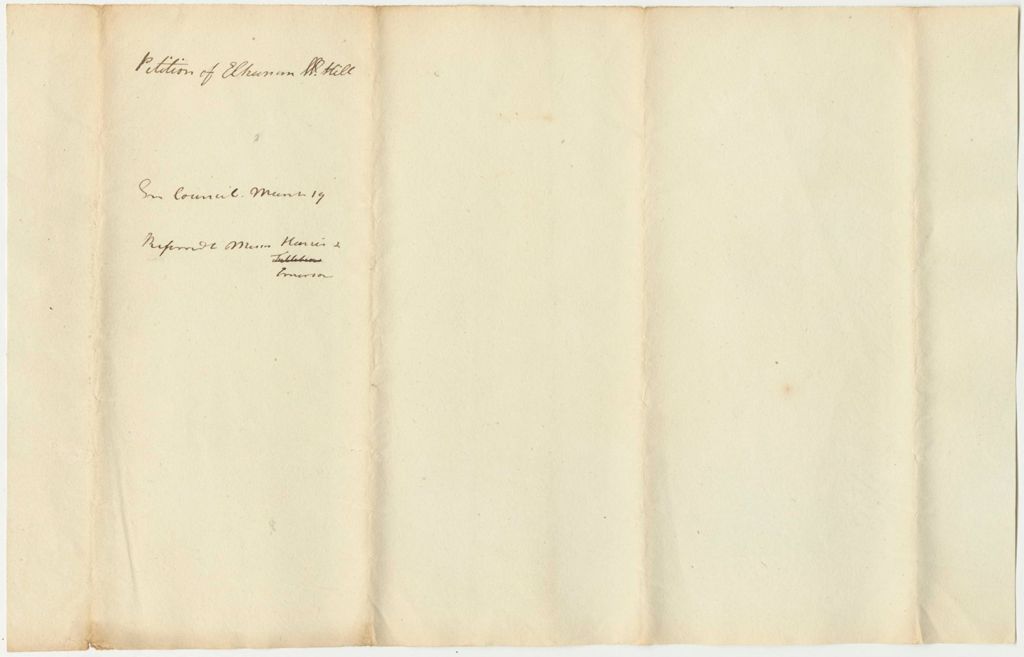 Petition of Elhanan W. Hill
In Council. March 19
Referred to Messrs Harris &
Emerson